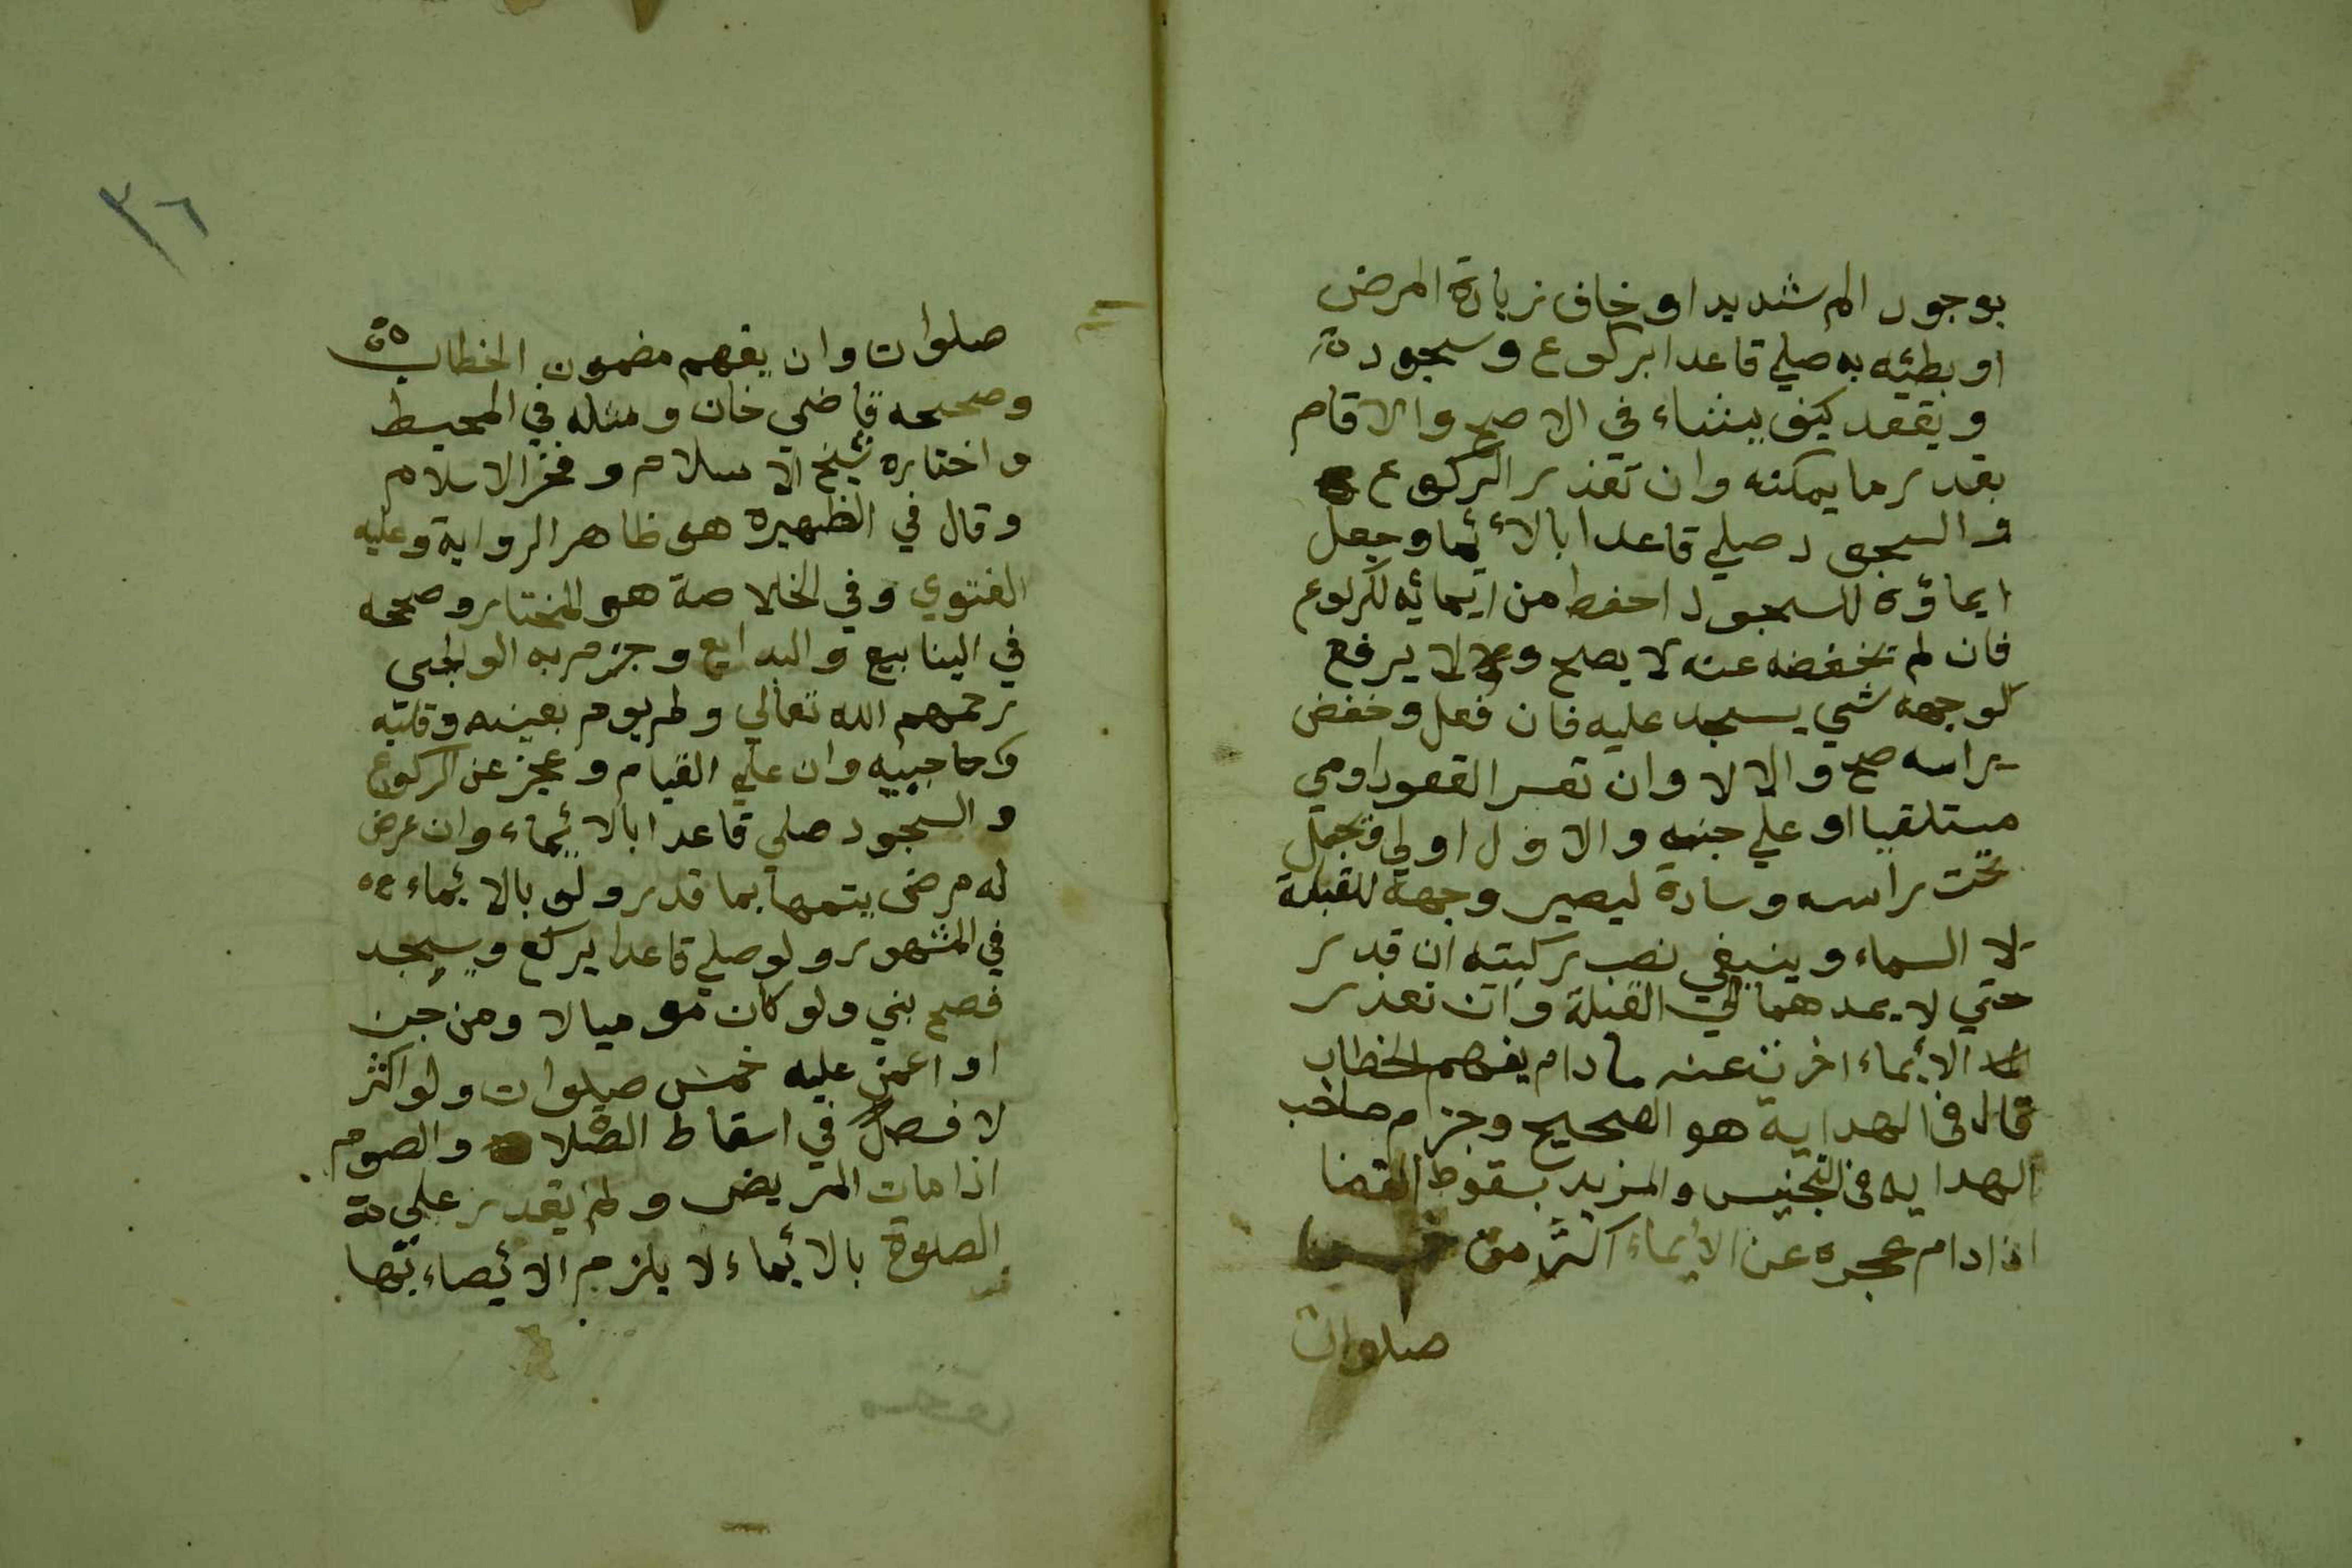 بوجود الم شديد او خاف زيادة المرض
او بطئه به صلي قاعدا بركوع وسجود
ويقعد كيف يشاء في الاصح والا قام
بقدر ما يمكنه وان تعذر الركوع
والسجود صلي قاعدا بالائيما وجعل
ايماؤه للسجود احفط من ايمائه للركوع
فان لم تخفضه عنه لا يصح ولا يرفع
لوجهه شي يسجد عليه فان فعل وخفض
براسه صح والا لا وان تعسر القعود اومي
مستلقيا او علي جنبه والاول اولي فتجعل
تحت راسه وسادة ليصير وجهه للقبلة
لا السماء وينبغي نصب ركبته ان قدر
حتي لا يمدهما الي القبلة وان تعذر
الائيماء اخرت عنه مادام يفهم الخطاب
قال في الهداية هو الصحيح وجزام صاحب
الهدايه في التجنيس والمزيد بسقوط القضا
اذا دام عجزه عن الائيماء اكثر من خمس
صلوات
٣٦
صلوات وان يفهم مضمون الخطاب
وصححه قاضي خان ومثله في المحيط
واختاره شيخ الاسلام وفخر الاسلام
وقال في الظهيره هو ظاهر الرواية وعليه
الفتوي وفي الخلاصة هو المختار وصححه
في الينابيع والبدايع وجزم به الولجي
رحمهم الله تعالي ولم يوم بعينه وقلبه
وحاجبيه وان علي القيام وعجز عن الركوع
والسجود صلي قاعدا بالائيماء وان عرض
له مرض يتمها بما قدر ولو بالائيماء
في المشهور ولو صلي قاعدا يركع ويسجد
فصح بني ولو كان موميا لا ومن جن
او اغمي عليه خمس صلوات ولو اكثر
لا فصل في اسقاط الصلاة والصوم
اذا مات المريض ولم يقدر علي
الصلوة بالائيماء لا يلزم الائيصاء بها